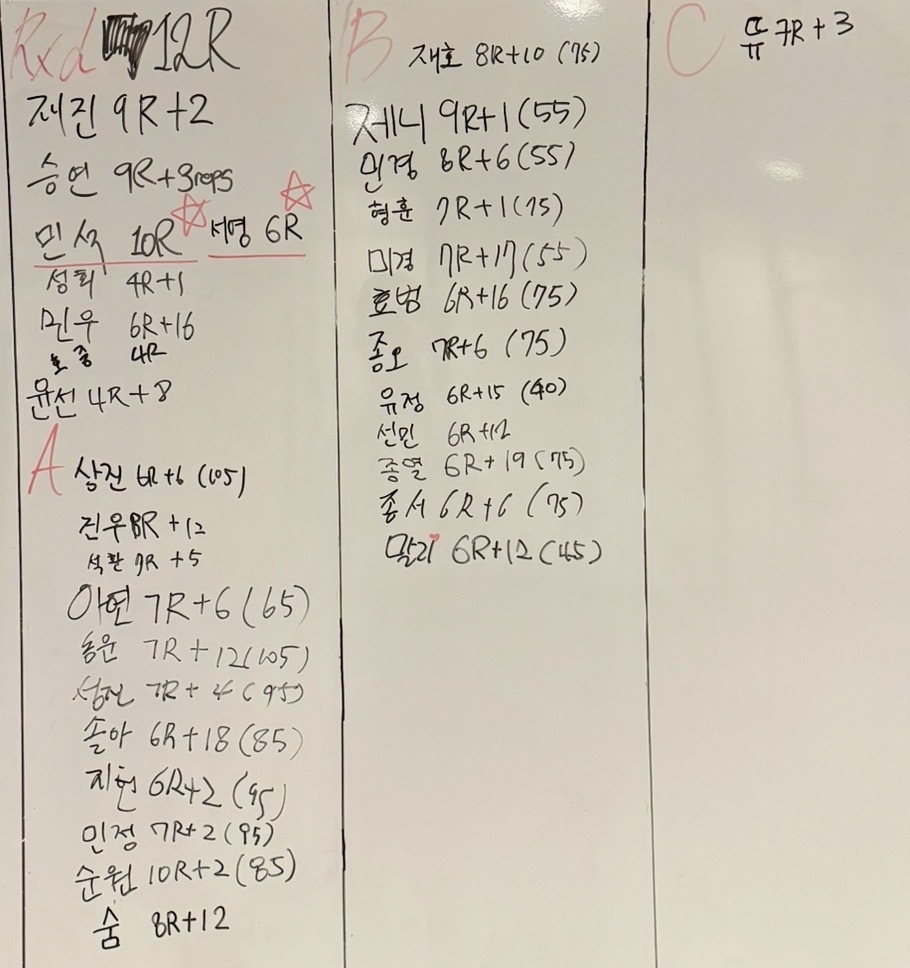 Rxd 12R
재진 9R+2
승연 9R+3reps
민석 10R ☆ 서영 6R ☆
성희 4R+1
민우 6R+16
호중 4R
윤선 4R+8
A 상진 6R+6 (105)
진우 8R+12
석환 7R+5
아연 7R+6 (65)
7R+12 (105)
7R+4 (95)
솔아 6R+18 (85)
지현 6R+2 (95)
민정 7R+2 (95)
순원 10R+2 (85)
숨 8R+12
B 재호 8R+10 (75)
제니 9R+1 (55)
민경 8R+6 (55)
형훈 7R+1 (75)
미경 7R+17 (55)
효범 6R+16 (75)
종오 7R+6 (75)
유정 6R+15 (40)
선민 6R+12
종열 6R+19 (75)
종서 6R+6 (75)
말리 6R+12 (45)
C 뜌 7R+3